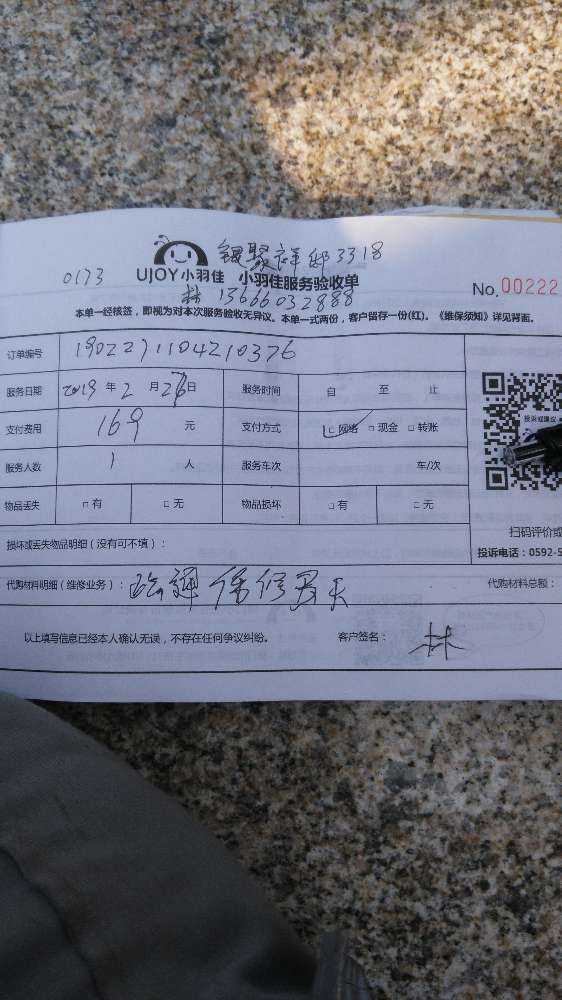 银聚祥邸3318
0173 UJOY小羽佳 小羽佳服务验收单 No.00222
林 13666032888
本单一经核签，即视为对本次服务验收无异议。本单一式两份，客户留存一份(红)。《维保须知》详见背面。
订单编号 1902271104210376
服务日期 2019 年 2 月 28 日 服务时间 自 至 止
支付费用 169 元 支付方式 ☑网络 □现金 □转账
服务人数 1 人 服务车次 车/次
物品丢失 □有 □无 物品损坏 □有 □无
投诉或建议
扫码评价或
损坏或丢失物品明细（没有可不填）：
投诉电话：0592-5
代购材料明细（维修业务）： 保修 天 代购材料总额：
以上填写信息已经本人确认无误，不存在任何争议纠纷。 客户签名： 林